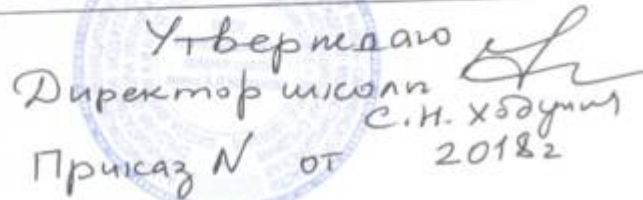 Утверждаю
Директор школы
С.Н. Ходунин
Приказ N от 2018г